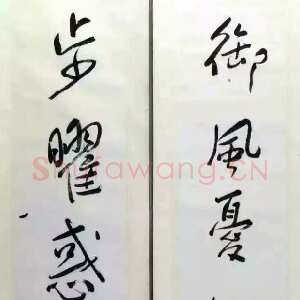 御風憂
步曜惑
ShuFawang.CN